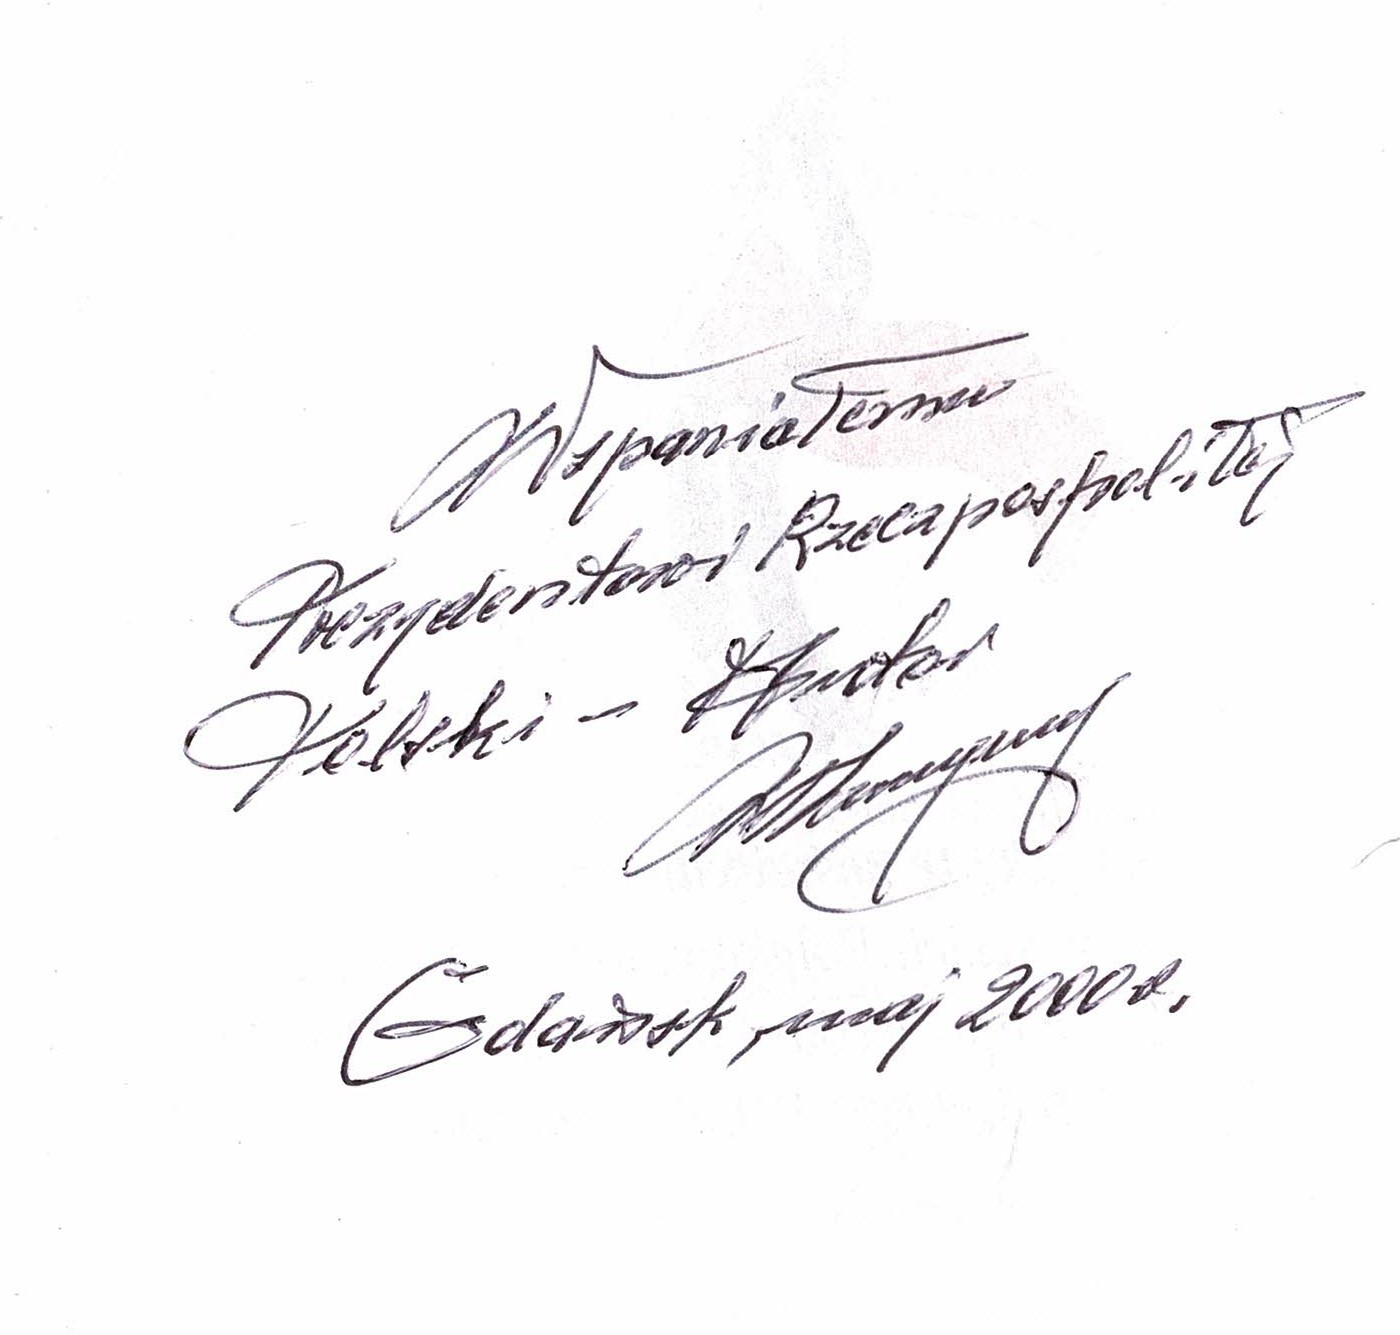 Wspaniałemu
Prezydentowi Rzeczpospolitej
Polski -
Gdańsk, maj 2000 r.